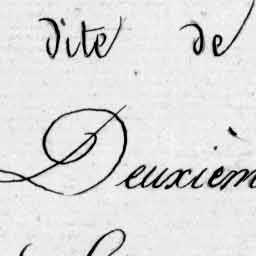 dite de
Deuxièm